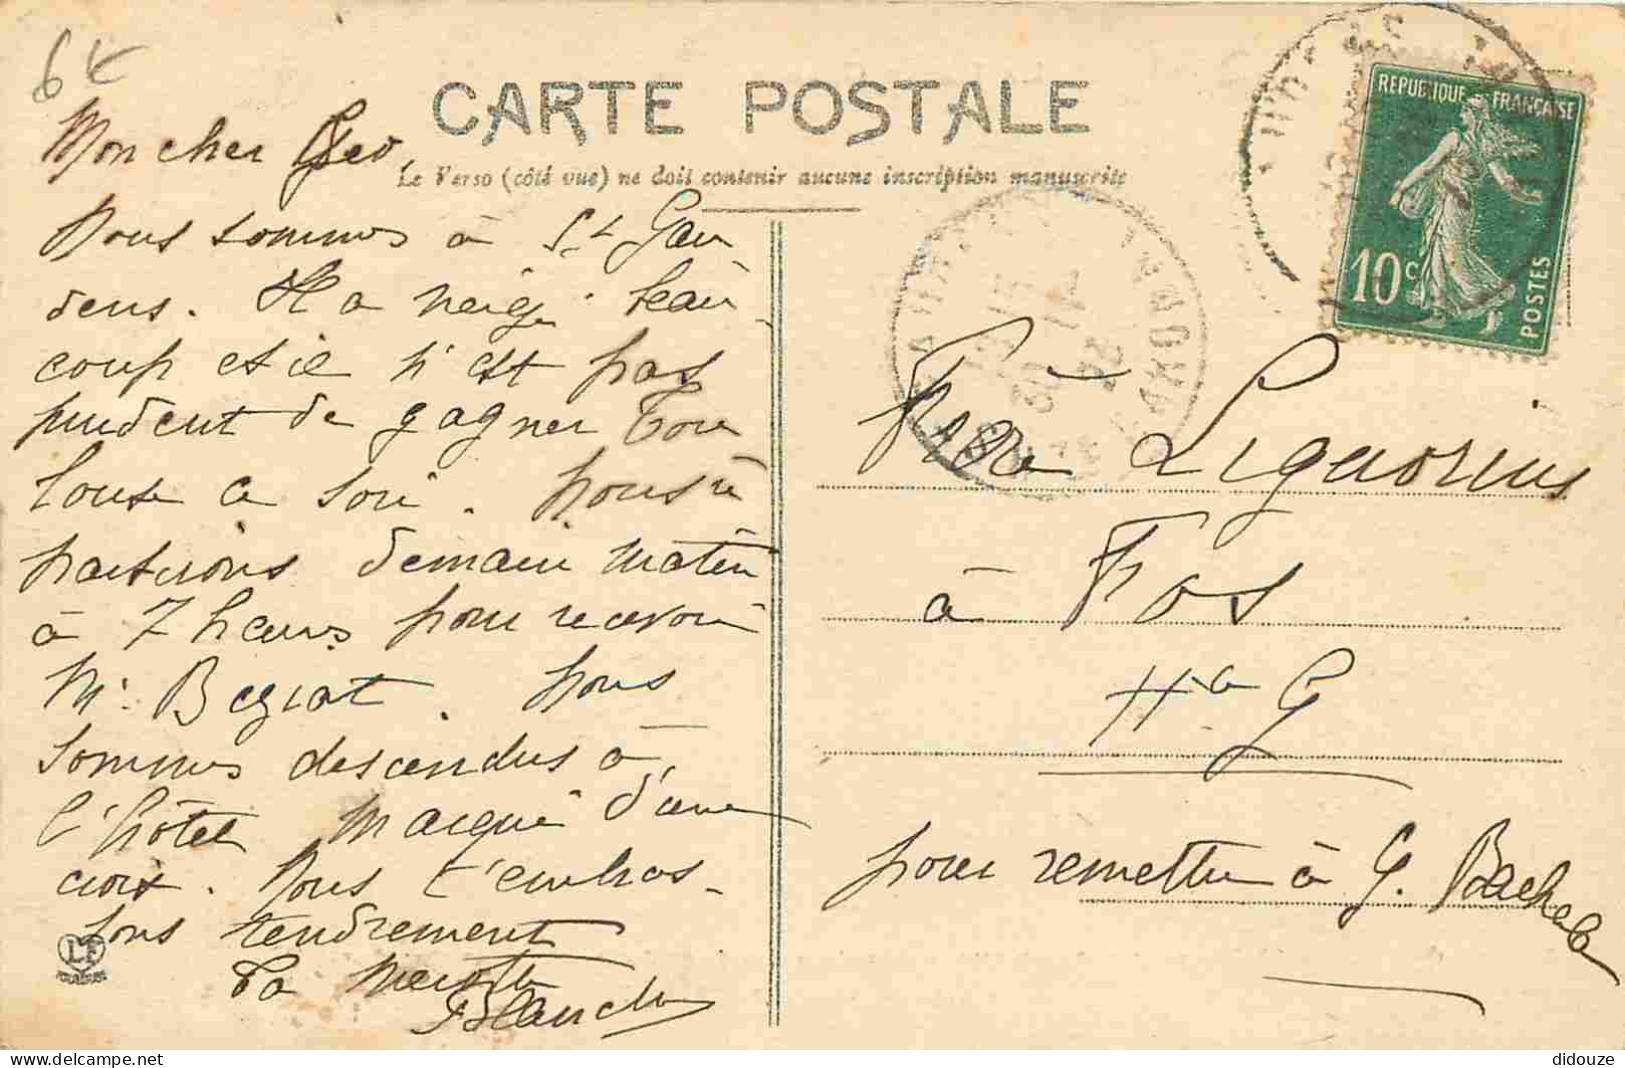 6€
CARTE POSTALE
Le Verso (côté vue) ne doit contenir aucune inscription manuscrite
REPUBLIQUE FRANÇAISE
10c
POSTES
Mon cher Geo,
Nous sommes à St Gau
dens. Il a neigé beau-
coup et il n'est pas
prudent de gagner Tou
louse ce soir. Nous
partirons demain matin
à 7 heures pour recevoir
Mr Begiat. Nous
sommes descendus à
l'hôtel
croix. Nous t'embras-
sons tendrement
Ta
Blanche
LF
Frère Liguorius
à Fos
Hte G
pour remettre à G.
didouze